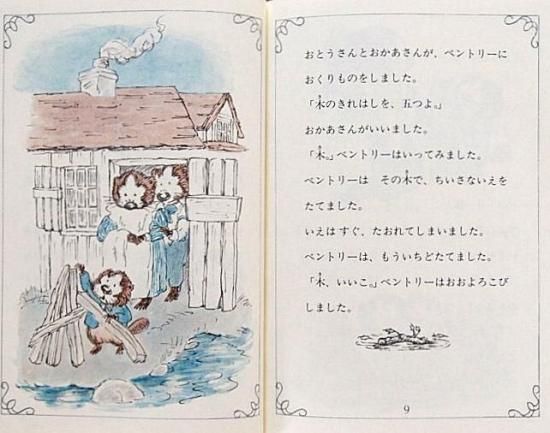 おとうさんとおかあさんが、ベントリーに
おくりものをしました。
「木のきれはしを、五つよ。」
おかあさんがいいました。
「木。」ベントリーはいってみました。
ベントリーは　その木で、ちいさないえを
たてました。
いえは すぐ、たおれてしまいました。
ベントリーは、もういちどたてました。
「木、いいこ。」ベントリーはおおよろこび
しました。
9